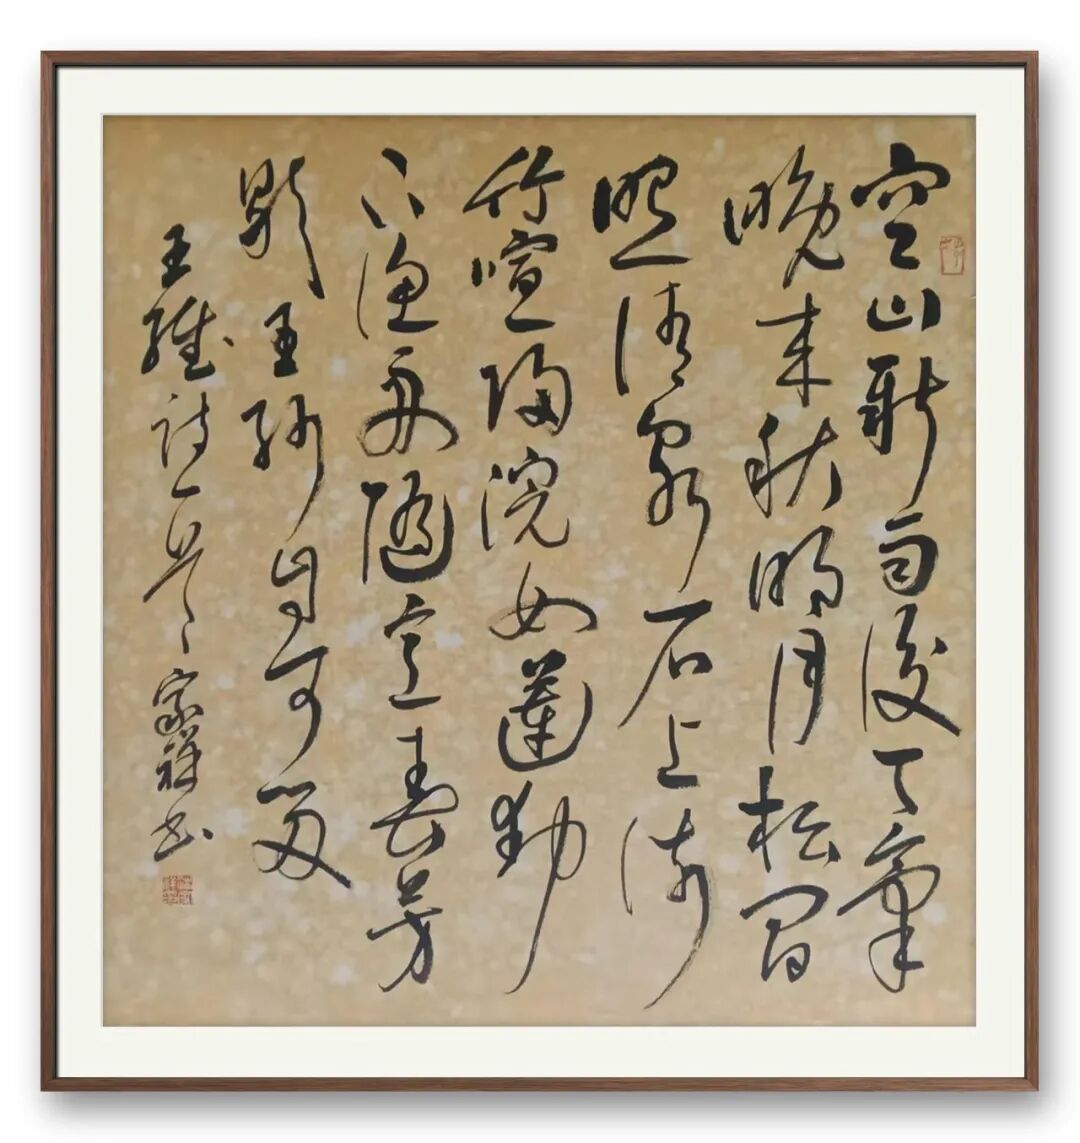 空山新雨後天氣
晚来秋明月松間
照清泉石上流
竹喧歸浣女蓮動
下漁舟隨意春芳
歇王孫自可留
王維詩一首家祥书